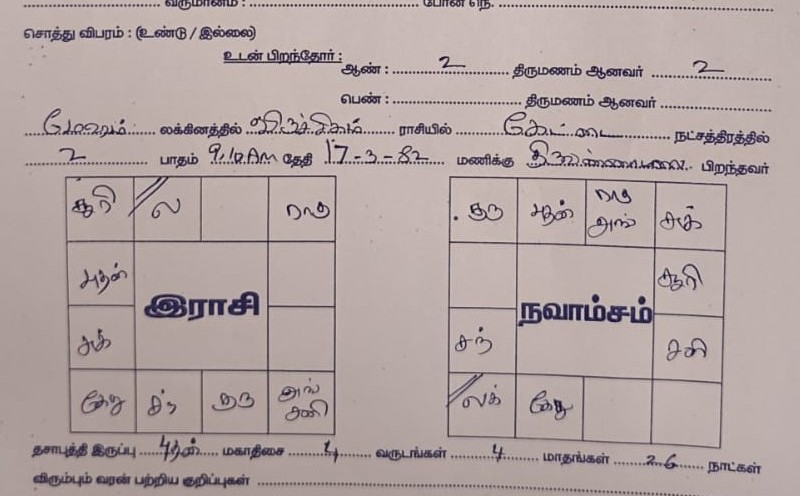 வருமானம் : போன் நெ.
சொத்து விபரம் : (உண்டு / இல்லை)
உடன் பிறந்தோர் :
ஆண் : 2 திருமணம் ஆனவர் 2
பெண் : திருமணம் ஆனவர்
மேஷம் லக்கினத்தில் விருச்சிகம் ராசியில் கேட்டை நட்சத்திரத்தில்
2 பாதம் 9.10 AM தேதி 17-3-82 மணிக்கு திருவண்ணாமலை பிறந்தவர்
சூரி ல ராகு
புதன்
இராசி
சுக்
கேது சந் குரு அங் சனி
குரு புதன் ராகு அங் சுக்
சூரி
நவாம்சம்
சந் சனி
லக் கேது
தசாபுத்தி இருப்பு புதன் மகாதிசை 4 வருடங்கள் 4 மாதங்கள் 26 நாட்கள்
விரும்பும் வரன் பற்றிய குறிப்புகள்